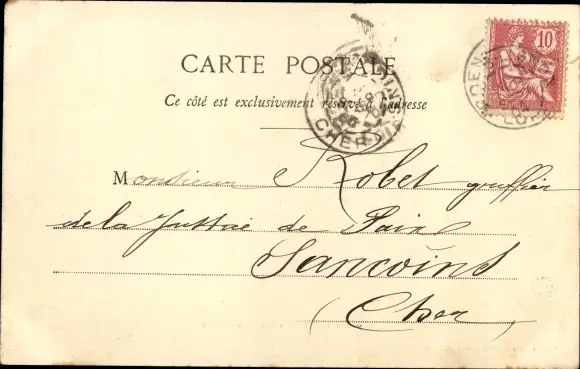 10
CARTE POSTALE
Ce côté est exclusivement réservé à l'adresse
SANCOINS
CHER
Monsieur Robet greffier
de la Justice de Paix
Sancoins
(Cher